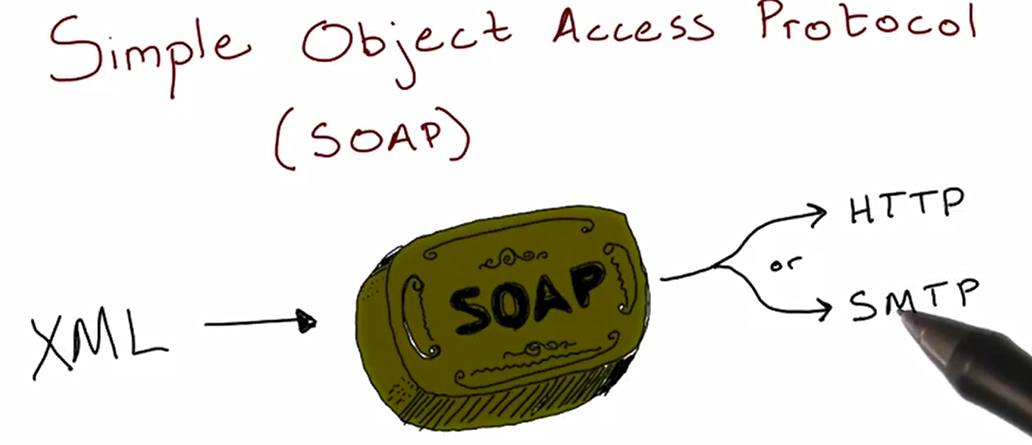 Simple Object Access Protocol
(SOAP)
XML
SOAP
HTTP
or
SMTP